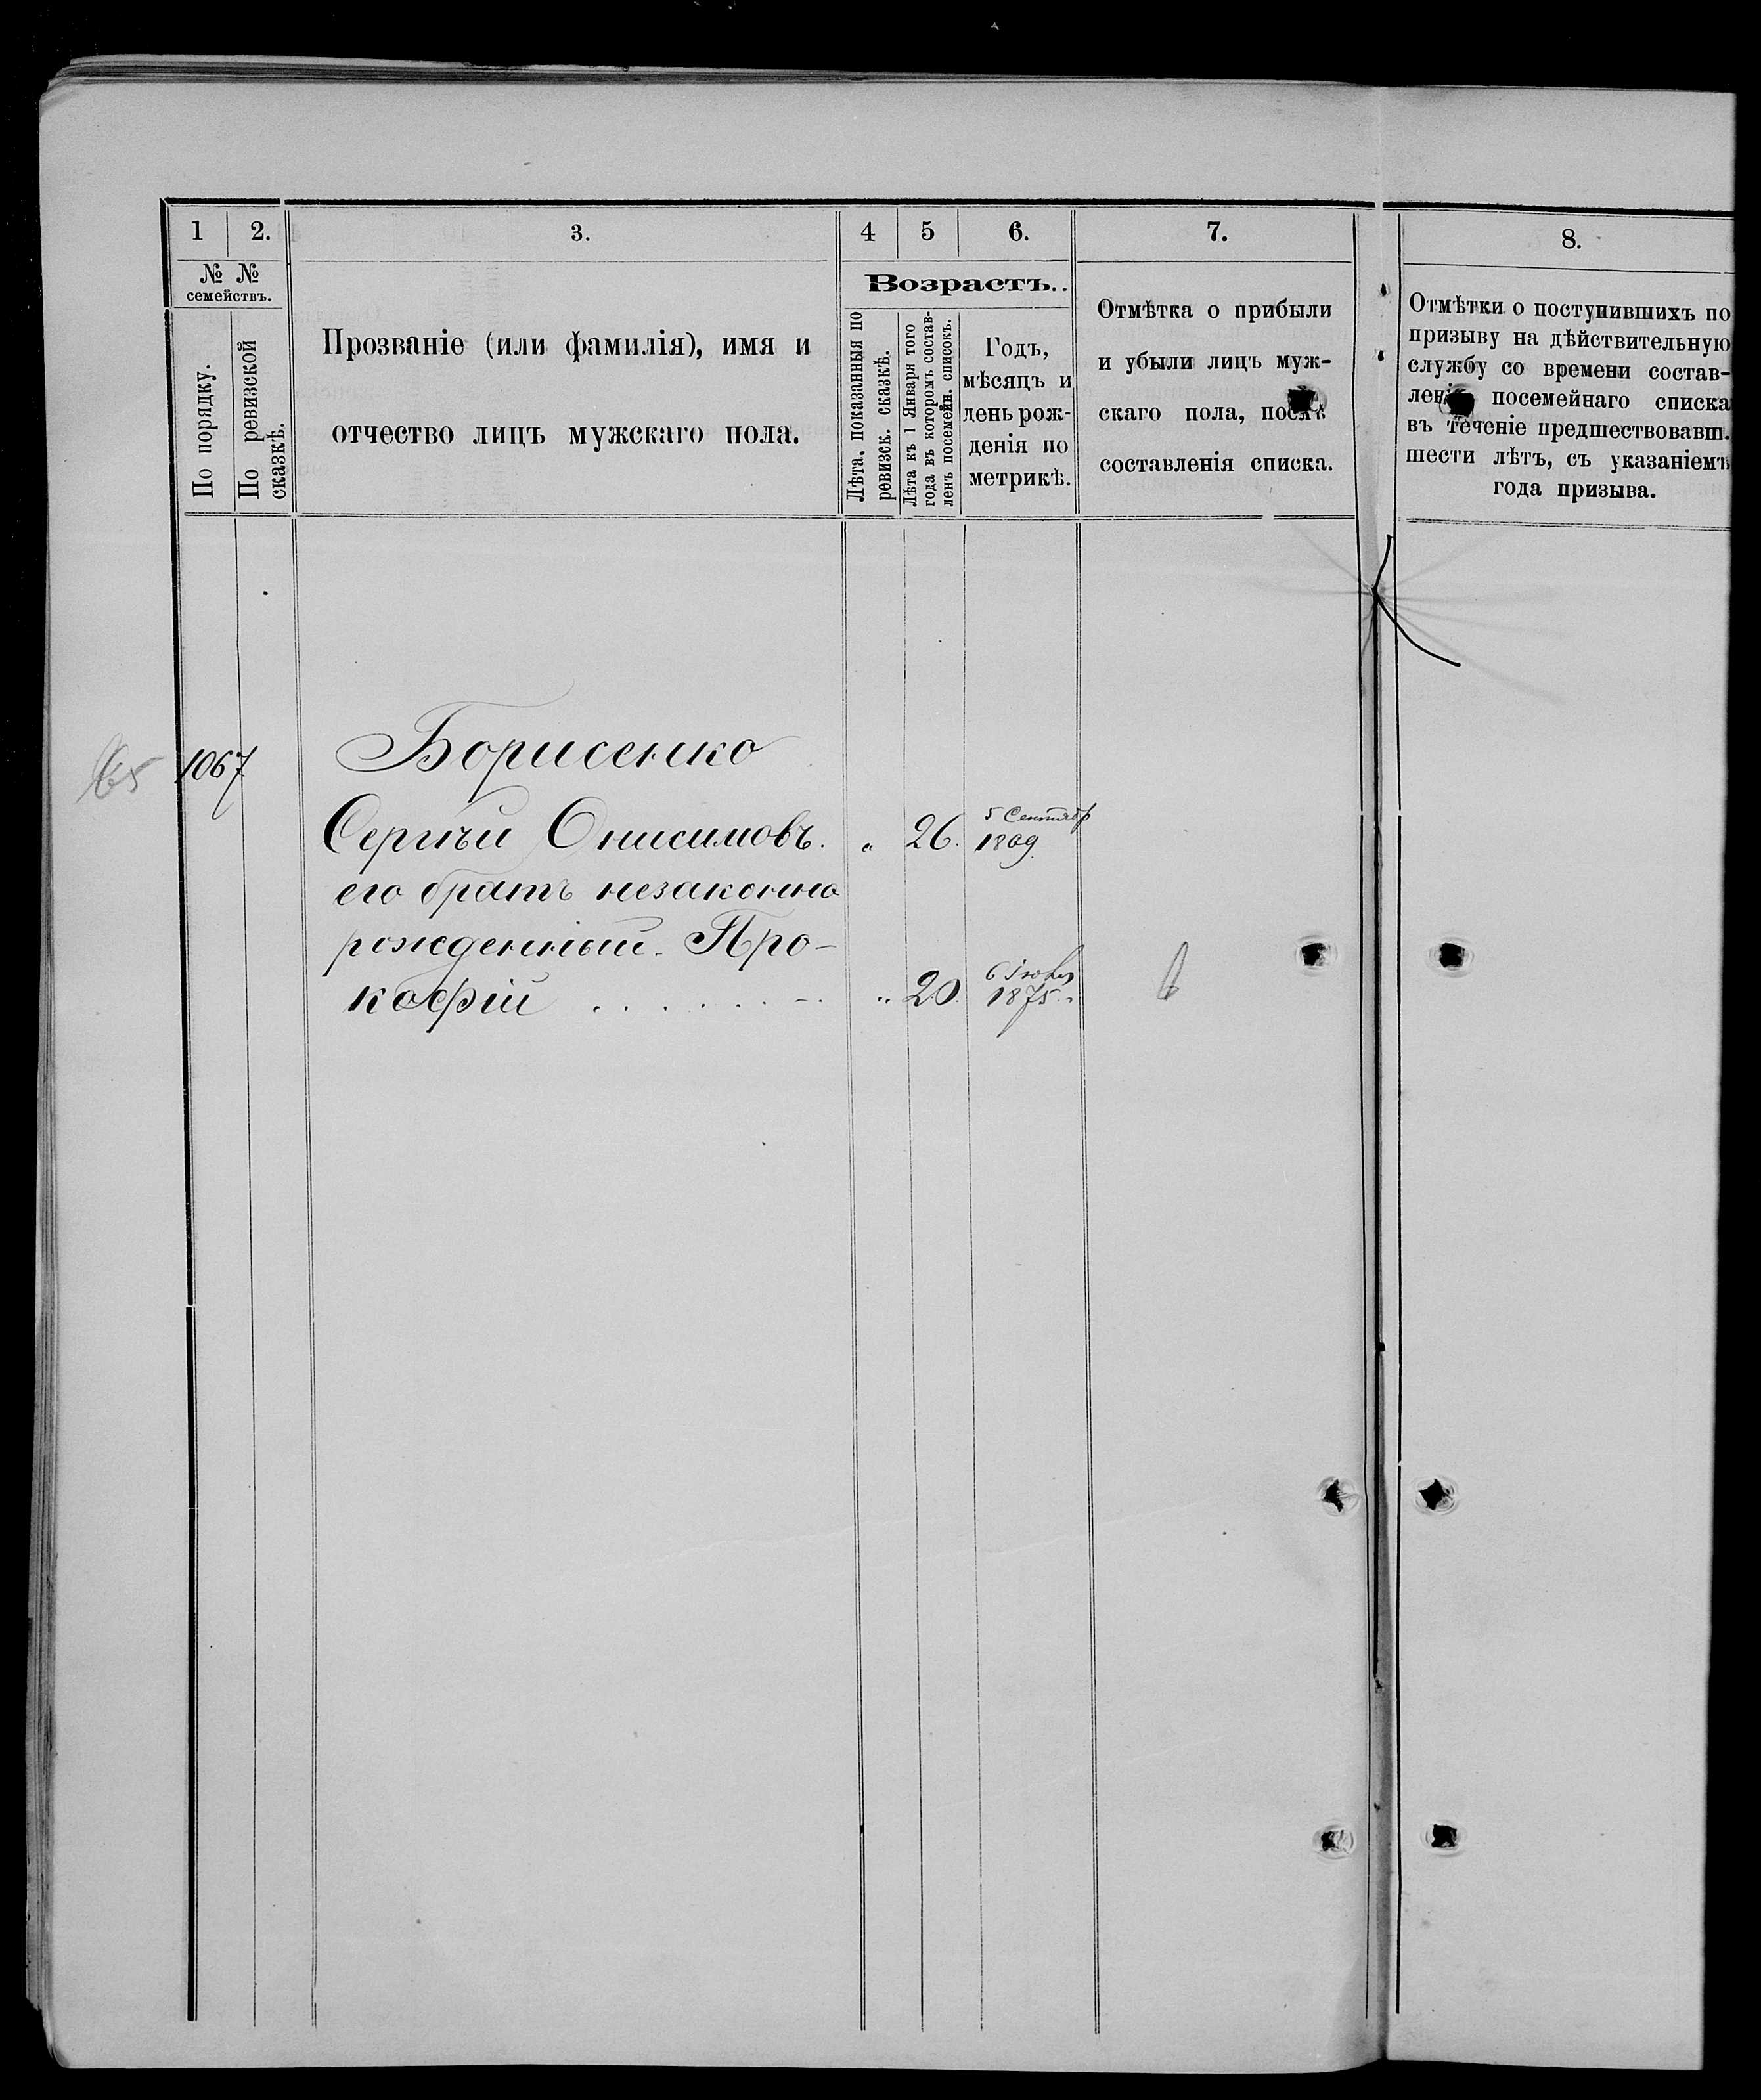 1 2. 3. 4 5 6. 7. 8.
№ №
семействъ.
По порядку.
По ревизской
сказкѣ.
Прозваніе (или фамилія), имя и
отчество лицъ мужскаго пола.
Возрастъ.
Лѣта, показанныя по
ревизск. сказкѣ.
Лѣта къ 1 Января того
года въ которомъ состав-
ленъ посемейн. списокъ.
Годъ,
мѣсяцъ и
день рож-
денія по
метрикѣ.
Отмѣтка о прибыли
и убыли лицъ муж-
скаго пола, послѣ
составленія списка.
Отмѣтки о поступившихъ по
призыву на дѣйствительную
службу со времени состав-
ленія посемейнаго списка
въ теченіе предшествовавш.
шести лѣтъ, съ указаніемъ
года призыва.
1067 Борисенко
Сергѣй Онисимовъ. „ 26. 5 Сентябр 1869.
его братъ незаконно
рожденный. Про-
кофій . . . . . . . „ 20. 1875.